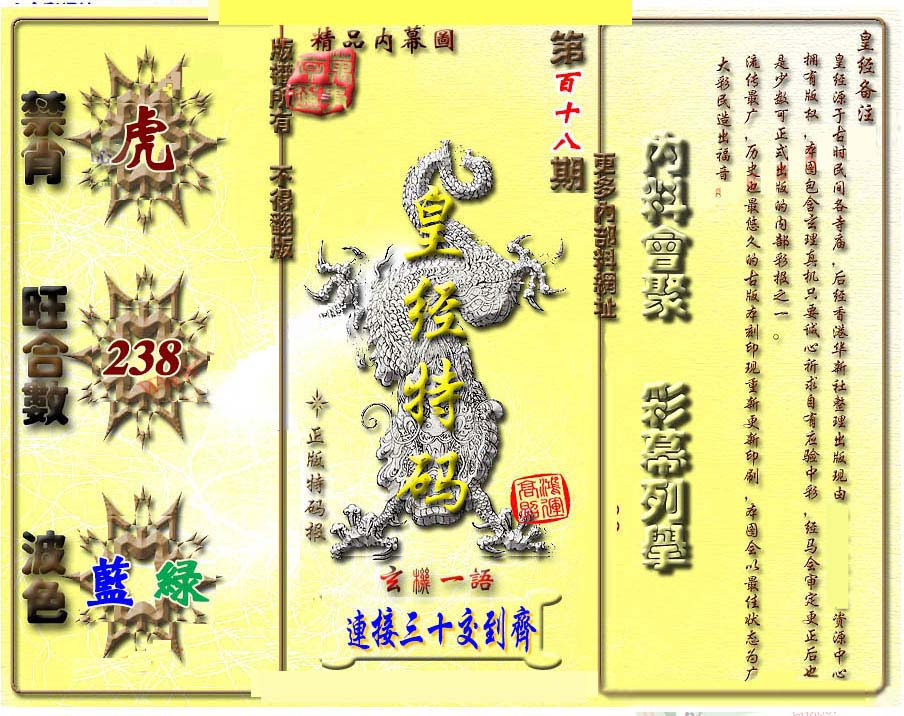 皇经备注
皇经源于古时民间各寺庙，后经香港华新社整理出版现由 资源中心
拥有版权，本图包含玄理真机只要诚心祈求自有应验中彩，经马会审定更正后也
是少数可正式出版的内部彩报之一。
流传最广，历史也最悠久的古版本刻印现重新更新印刷，本图会以最佳状态为广
大彩民造出福音
內料會聚
彩幕列舉
更多內部料網址
第百十八期
精品内幕圖
皇经特码
正版特码报
鴻運
高照
玄機一語
連接三十交到齊
版權所有 不得翻版
禁肖
虎
旺合數
238
波色
藍 綠